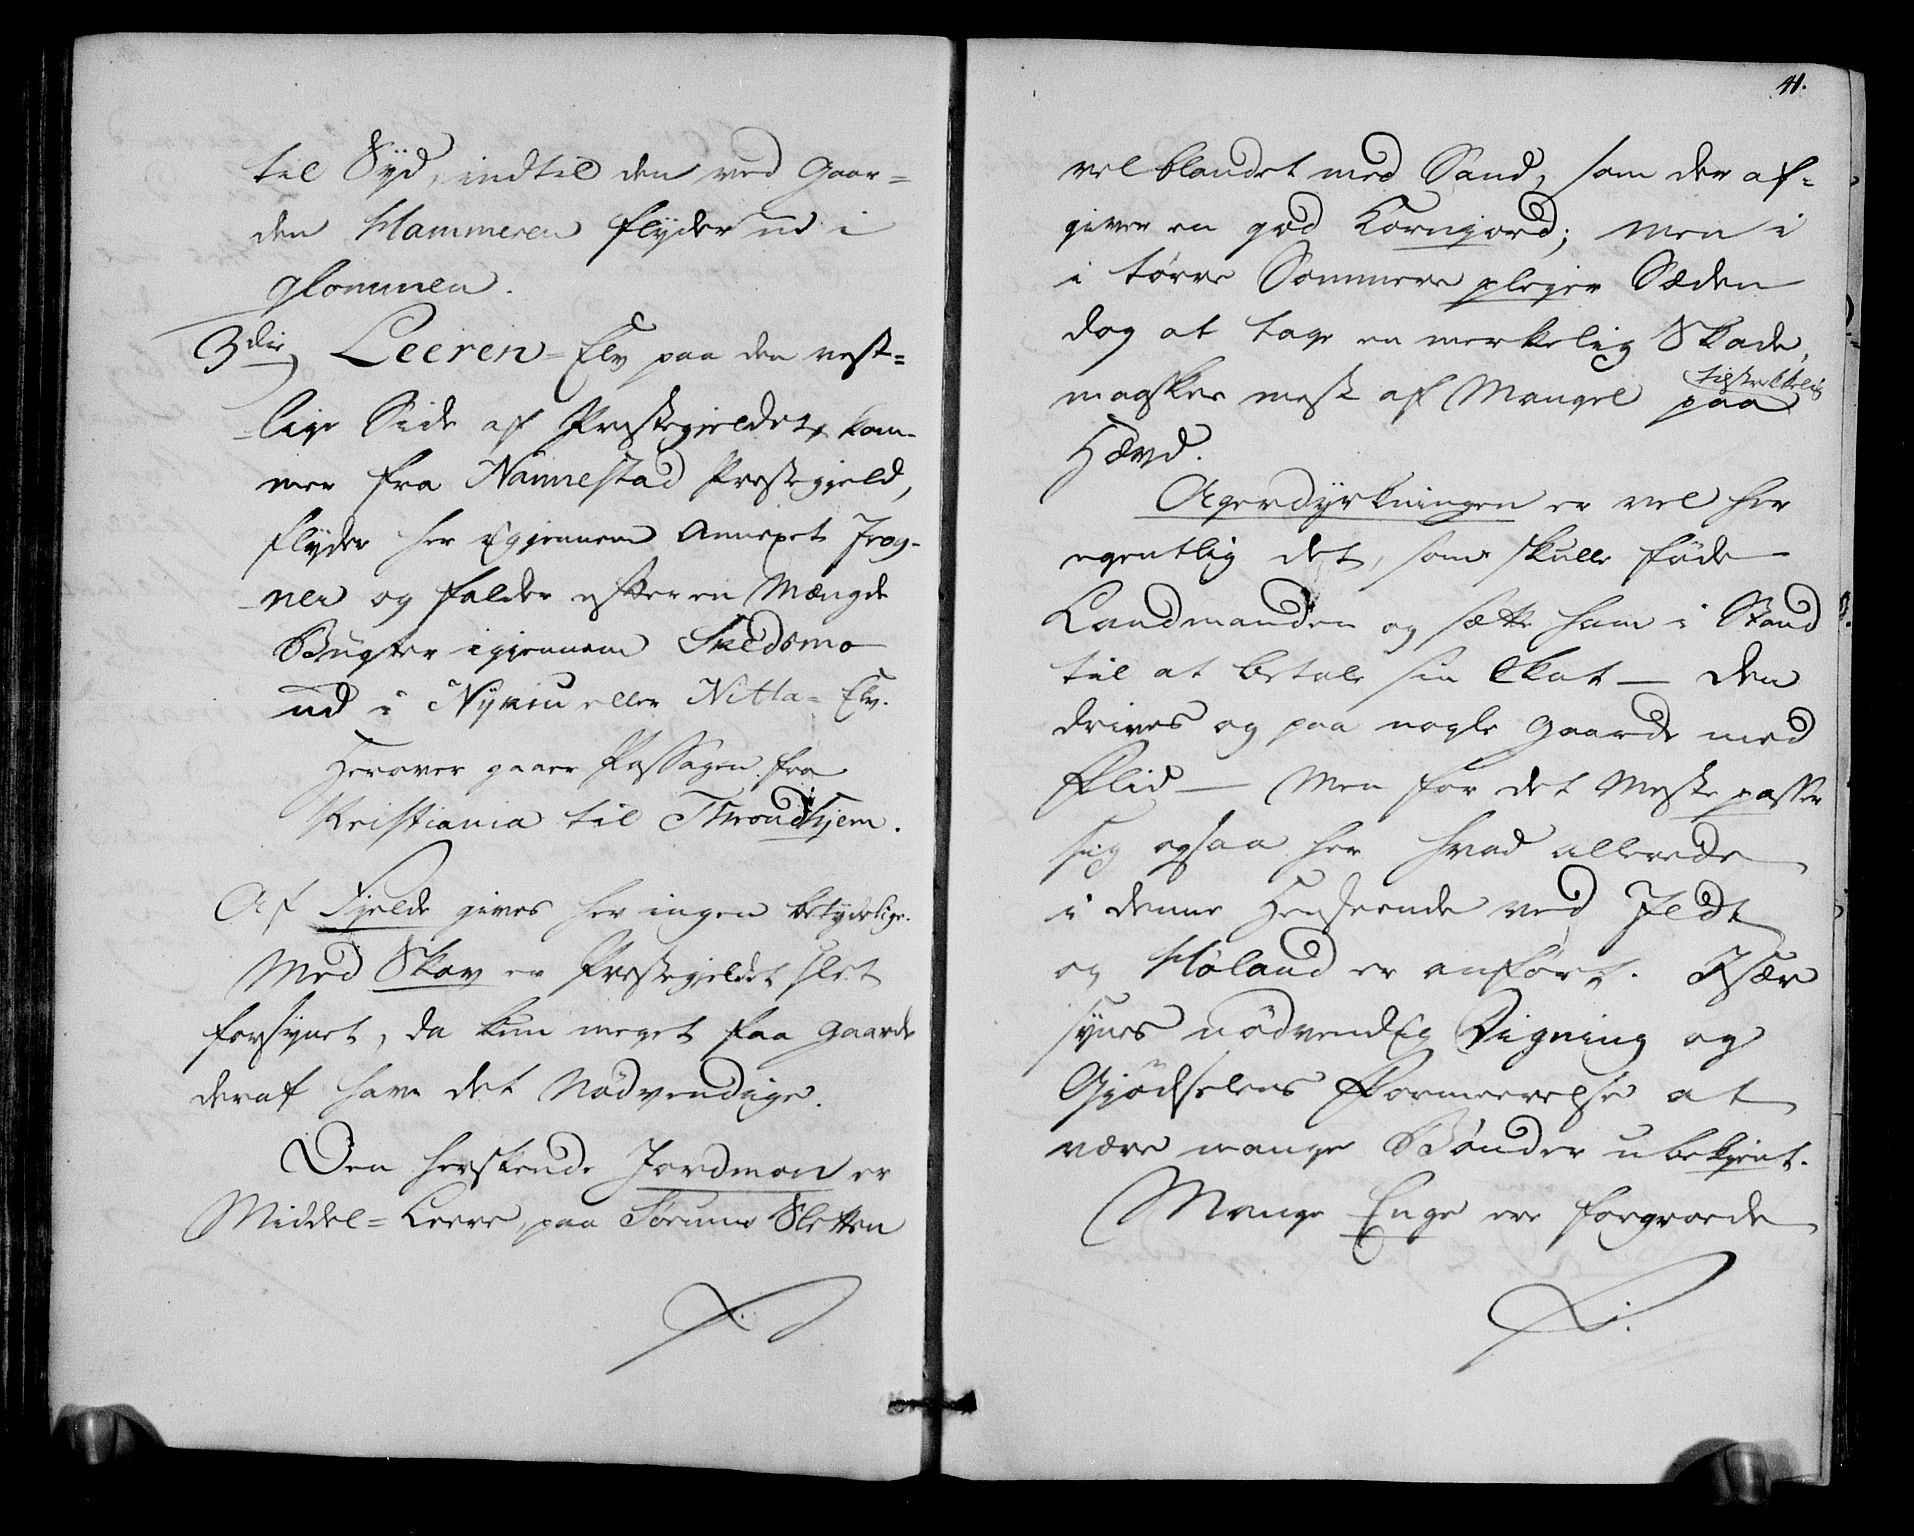 til Syd, indtil den ved Gaar=
den Hammeren flyder ud i
Glommen.
3die Leeren=Elv paa den vest=
lige Side af Præstegieldet, kom-
mer fra Nannestad Præstegield,
flyder her igjennem Annexet Frog-
ner og falder efter en Mængde
Bugter igjennem Skedsmo
ud i Nykiu eller Nitta=Elv.
Herover gaaer Passagen fra
Kristiania til Throndhjem.
Af Fjelde gives her ingen betydelige.
Med Skov er Præstegjeldet slet
forsynet, da kun meget faa Gaarde
deraf have det Nødvendige.
Den herskende Jordmon er
Middel=Leere, paa Sørums Sletten
41.
vel blandet med Sand, som der af=
giver en god Kornjord; men i
i tørre Sommere pleier Sæden
dog at tage en merkelig Skade,
maaskee mest af Mangel paa tilstrekkelig
Hævd.
Agerdyrkningen er vel her
egentlig det, som skulle føde
Landmanden og sætte ham i Stand
til at betale sin Skat — den
drives og paa nogle Gaarde med
Flid — Men for det meste passer
sig ogsaa her hvad allerede
i denne Henseende ved Fedt
og Høland er anført. Især
synes nødvendig Digning og
Gjødselens Formeerelse at
være mange Bønder ubekjent.
Mange Enge ere forgroede